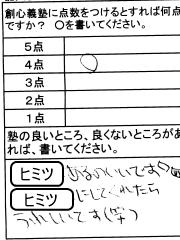 創心義塾に点数をつけるとすれば何点
ですか？ ○を書いてください。
5点
4点 ○
3点
2点
1点
塾の良いところ、良くないところがあ
れば、書いてください。
ヒミツ あるのいいです
ヒミツ にしてくれたら
うれしいです(笑)